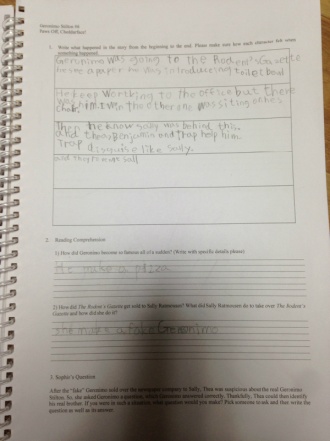 Geronimo Stilton #9
1. Write what happened in the story from the beginning to the end. Please make sure how each character felt when
something happened.
Geronimo was going to the Rodent's Gazette
he see a paper he day introducing toilet bowl
He keep working to the office but there
was him twin the other one was siting on his
chair.
Then he know sally was behind this.
and thea, Benjamin and trap help him.
Trap disguise like Sally.
2. Reading Comprehension
1) How did Geronimo become so famous all of a sudden? (Write with specific details please)
He make a pizza
2) How did The Rodent's Gazette get sold to Sally Ratmousen? What did Sally Ratmousen do to take over The Rodent's
Gazette and how did she do it?
she make a fake Geronimo
3. Sophie's Question
After the "fake" Geronimo sold over the newspaper company to Sally, Thea was suspicious about the real Geronimo
Stilton. So, she asked Geronimo a question, which Geronimo answered correctly. Thankfully, Thea could then identify
his real brother. If you were in such a situation, what question would you make? Pick someone to ask and then write the
question as well as its answer.